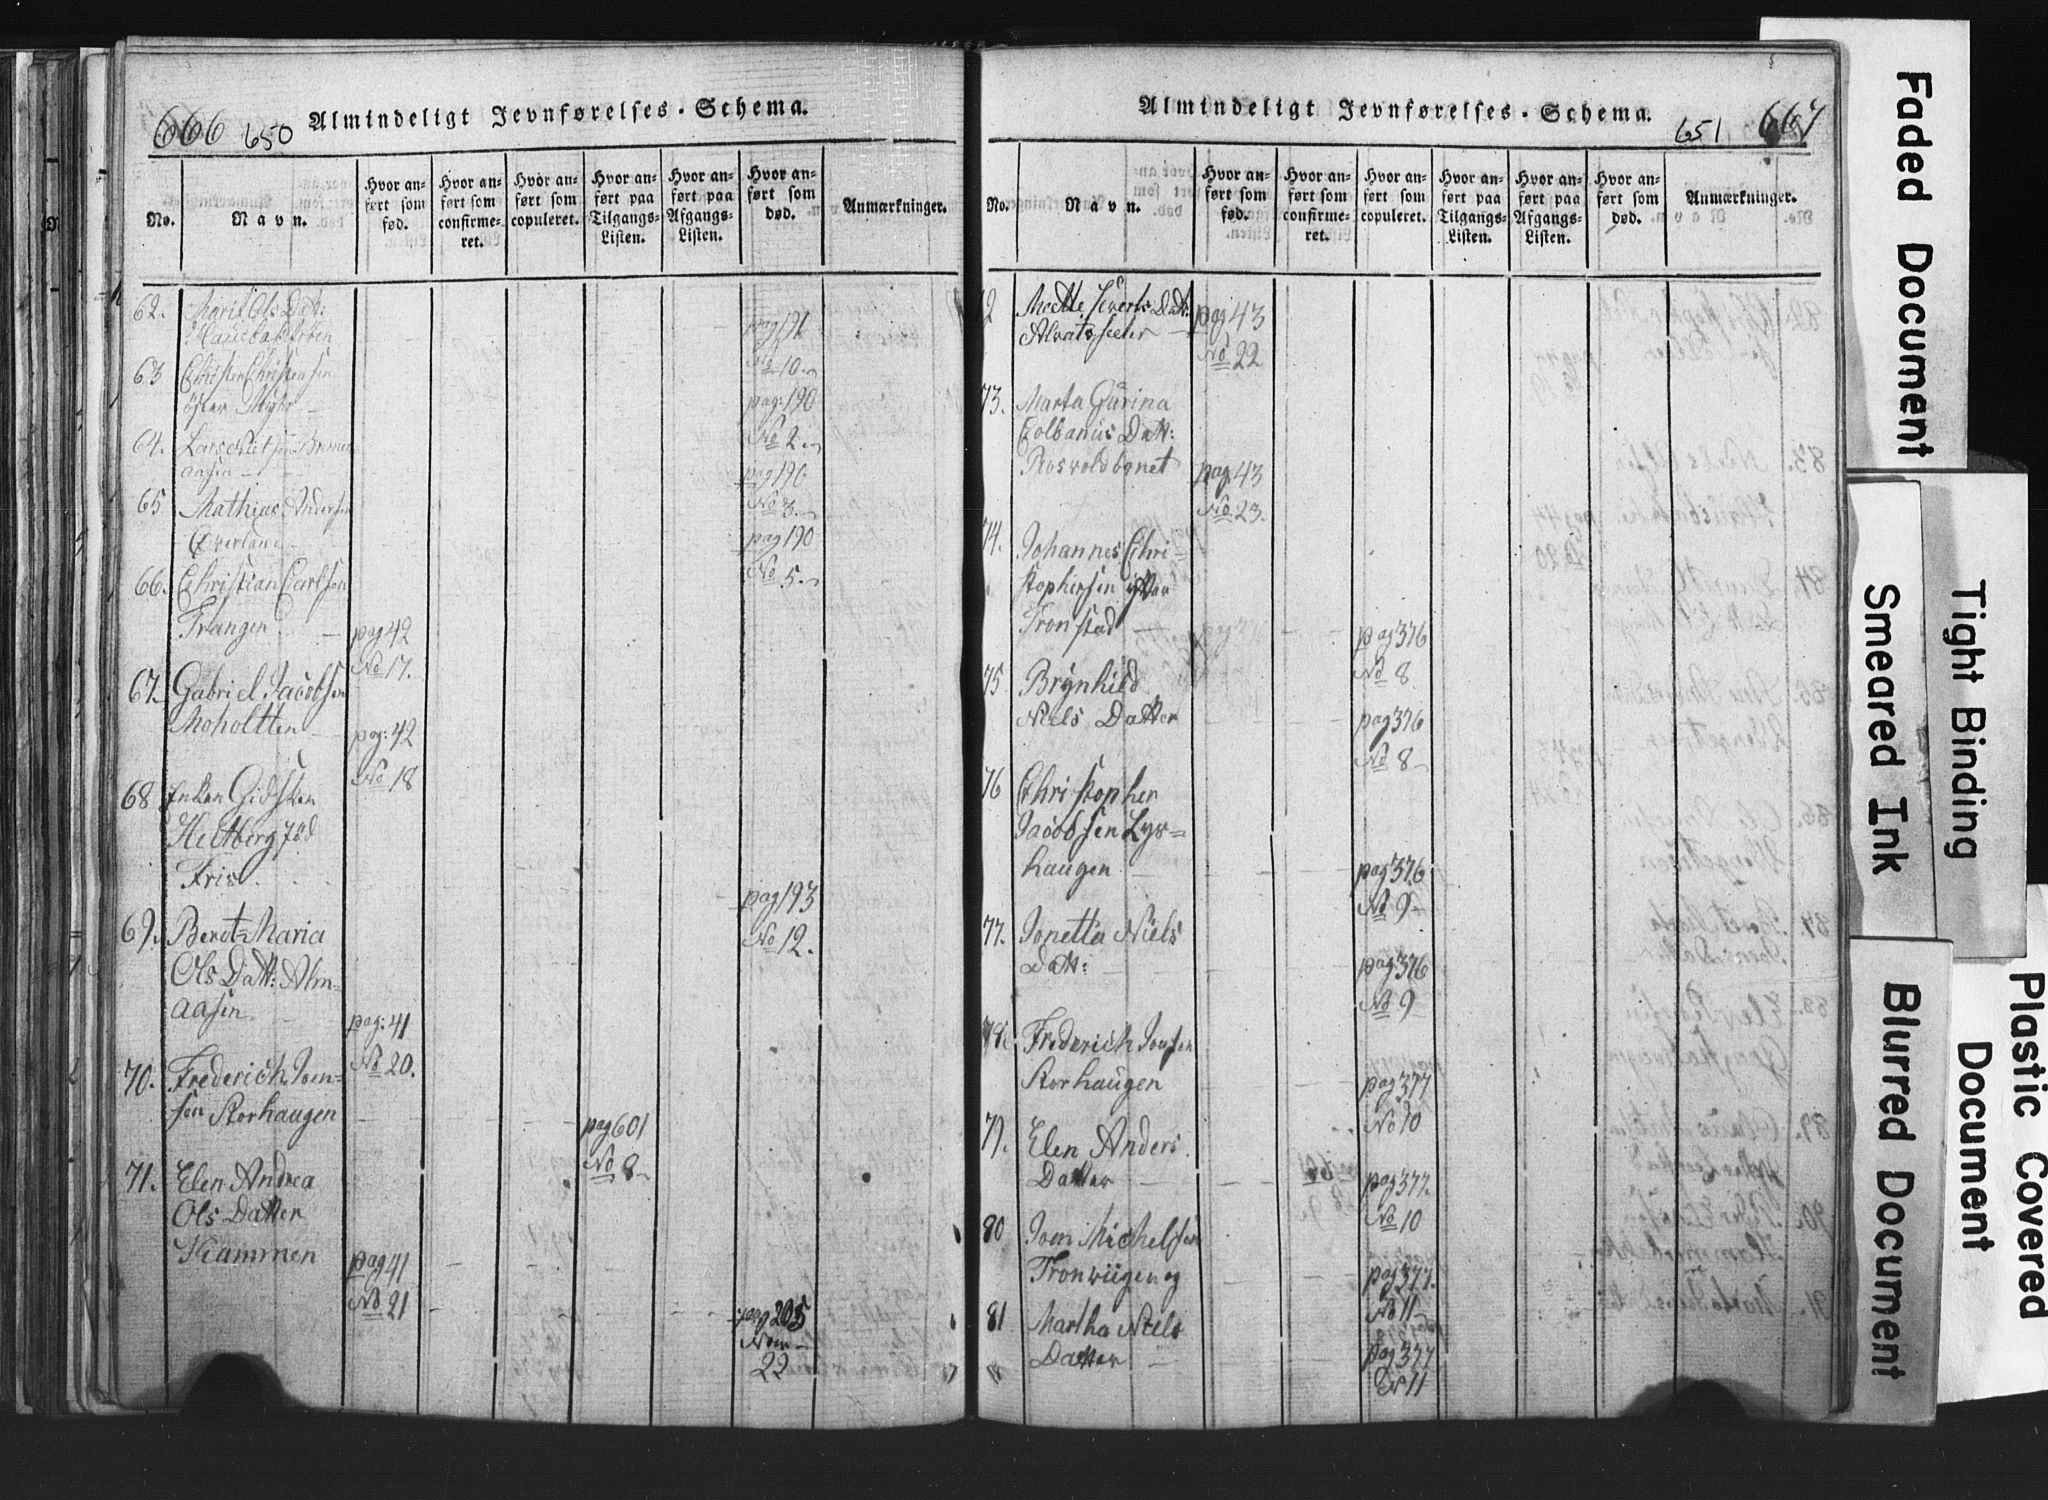 666 650 Almindeligt Jevnførelses-Schema.
No. Navn. Hvor anført som fød. Hvor anført som confirmeret. Hvor anført som copuleret. Hvor anført paa Tilgangs-Listen. Hvor anført paa Afgangs-Listen. Hvor anført som død. Anmærkninger.
62. Marit Ols Datt:
pag 191
No 10.
63 Christen Christensen
pag: 190
No 2.
64. Lars
aasen
pag 190
No 3.
65 Mathias Andersen
Overland
pag 190
No 5.
66. Christian Carlsen
Frangen pag 42
No 17.
67. Gabriel Jacobsen
Moholtten pag: 42
No 18
68 Enken Gidsken
Heltberg fød
Friis pag 193
No 12.
69. Berot-Maria
Ols Datt: Alm-
aasen pag: 41
No 20.
70. Frederich Joen-
sen Storhaugen pag 601
No 8
71. Elen Andrea
Ols Datter
Kammen pag 41
No 21
pag 205
Nom
22
Almindeligt Jevnførelses-Schema. 651 667
No. Navn. Hvor anført som fød. Hvor anført som confirmeret. Hvor anført som copuleret. Hvor anført paa Tilgangs-Listen. Hvor anført paa Afgangs-Listen. Hvor anført som død. Anmærkninger.
72 Mette Siverts Datt: pag 43
No 22
73. Marta Gurina
Colbanus Datt:
pag 43
No 23.
74. Johannes Chri-
stophersen
Tronstad pag 376
No 8
75 Brynhild
Niels Datter pag 376
No 8
76 Christopher
Jacobsen Lys=
haugen pag 376
No 9
77. Jonetta Niels
Datt: pag 376
No 9
78. Frederich Joensen
Storhaugen pag 377
No 10
79. Elen Anders
Datter pag 377.
No 10
80 Joen Michelsen
og pag 377.
No 11
81 Martha Niels
Datter pag 377
No 11
Faded Document
Tight Binding
Smeared Ink
Plastic Covered
Document
Blurred Document